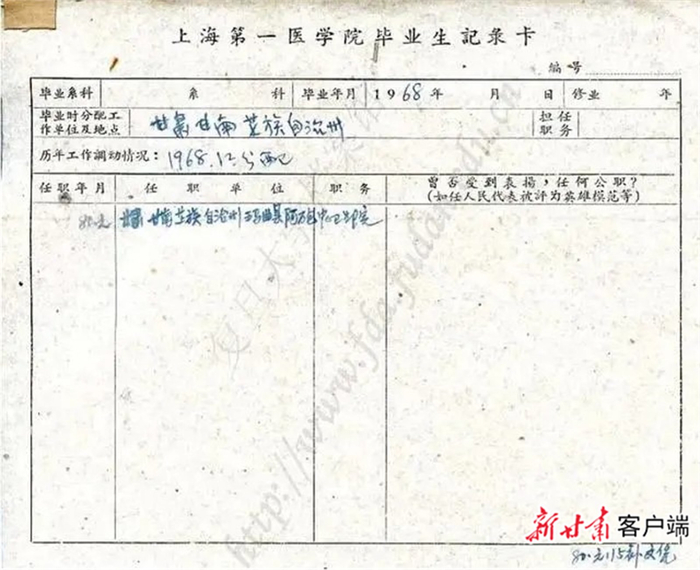 上海第一医学院毕业生記录卡
編号
毕业系科 系 科 毕业年月 1968年 月 日 修业 年
毕业时分配工作单位及地点 甘肃甘南藏族自治州 担任职务
历年工作調动情况：1968.12分配
任职年月 任职单位 职务 曾否受到表揚，任何公职？
(如任人民代表被評为英雄模范等)
80.元 甘肃甘南藏族自治州玛曲县阿万仓中心卫生院
复旦大学档案馆
http://www.fda.fudan.edu.cn
新甘肃 客户端
80.元.15